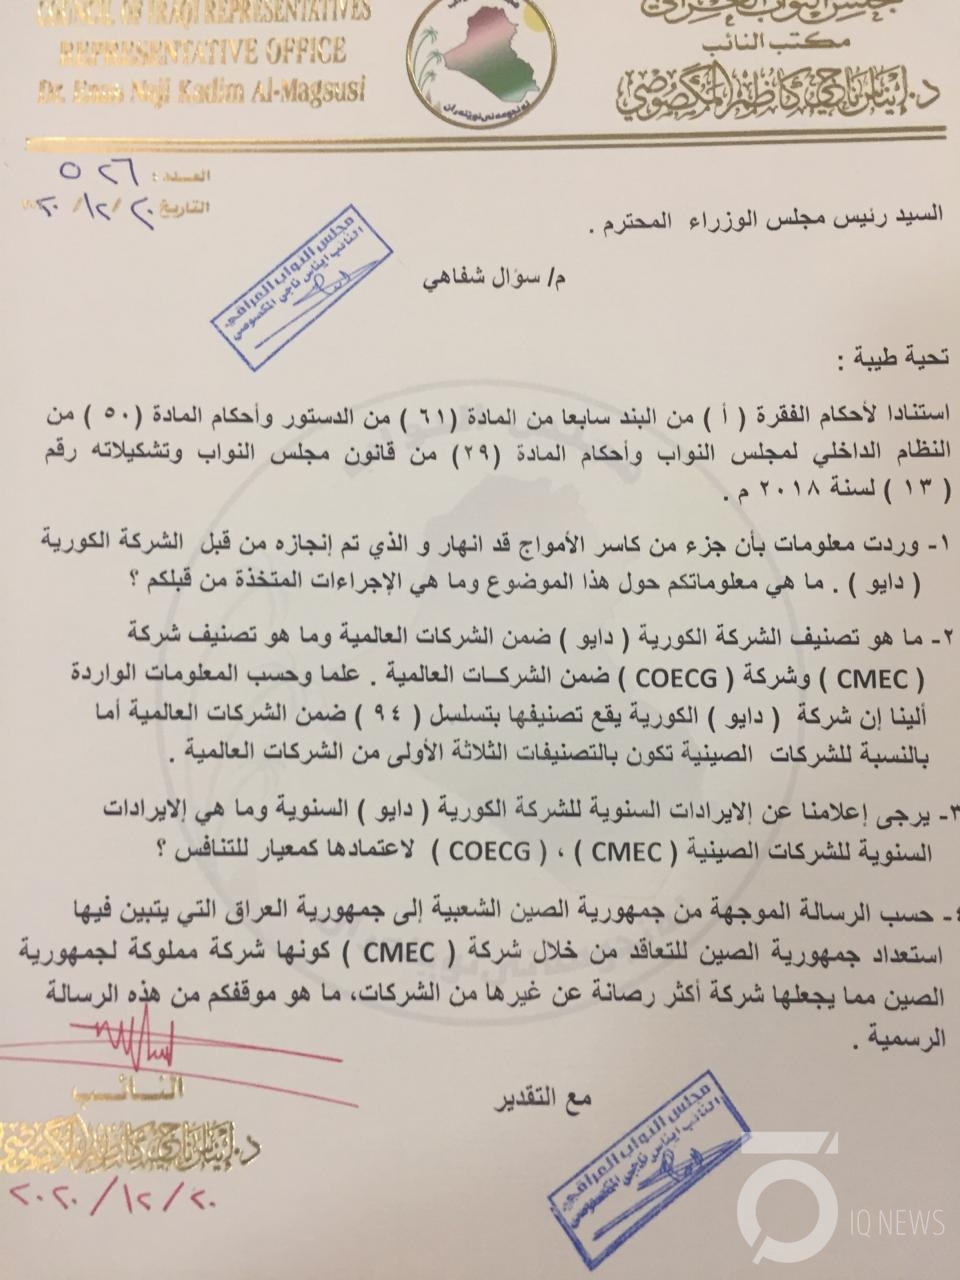 COUNCIL OF IRAQI REPRESENTATIVES
REPRESENTATIVE OFFICE
Dr. Enas Naji Kadim Al-Magsusi
مجلس النواب العراقي
مكتب النائب
د. إيناس ناجي كاظم المكصوصي
العدد : ٥٢٦
التاريخ ٢٠/١٢/٢٠٢٠
السيد رئيس مجلس الوزراء المحترم .
مجلس النواب العراقي
النائب ايناس ناجي المكصوصي
م/ سؤال شفاهي
تحية طيبة :
استنادا لأحكام الفقرة ( أ ) من البند سابعا من المادة (٦١ ) من الدستور وأحكام المادة (٥٠ ) من
النظام الداخلي لمجلس النواب وأحكام المادة (٢٩) من قانون مجلس النواب وتشكيلاته رقم
( ١٣ ) لسنة ٢٠١٨ م .
١- وردت معلومات بأن جزء من كاسر الأمواج قد انهار و الذي تم إنجازه من قبل الشركة الكورية
( دايو ) . ما هي معلوماتكم حول هذا الموضوع وما هي الإجراءات المتخذة من قبلكم ؟
٢- ما هو تصنيف الشركة الكورية ( دايو ) ضمن الشركات العالمية وما هو تصنيف شركة
( CMEC ) وشركة ( COECG ) ضمن الشركات العالمية . علما وحسب المعلومات الواردة
ألينا إن شركة ( دايو ) الكورية يقع تصنيفها بتسلسل ( ٩٤ ) ضمن الشركات العالمية أما
بالنسبة للشركات الصينية تكون بالتصنيفات الثلاثة الأولى من الشركات العالمية .
٣- يرجى إعلامنا عن إلايرادات السنوية للشركة الكورية ( دايو ) السنوية وما هي إلايرادات
السنوية للشركات الصينية ( CMEC ) ، ( COECG ) لاعتمادها كمعيار للتنافس ؟
٤- حسب الرسالة الموجهة من جمهورية الصين الشعبية إلى جمهورية العراق التي يتبين فيها
استعداد جمهورية الصين للتعاقد من خلال شركة ( CMEC ) كونها شركة مملوكة لجمهورية
الصين مما يجعلها شركة أكثر رصانة عن غيرها من الشركات، ما هو موقفكم من هذه الرسالة
الرسمية .
مع التقدير
النائب
د. إيناس ناجي كاظم المكصوصي
٢٠٢٠/١٢/٢٠
مجلس النواب العراقي
النائب ايناس ناجي المكصوصي
IQ NEWS